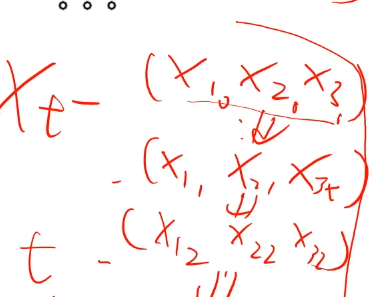 X_t - (X_1, X_2, X_3,)
- (X_1, X_2, X_3t)
t - (X_12 X_22 X_32)